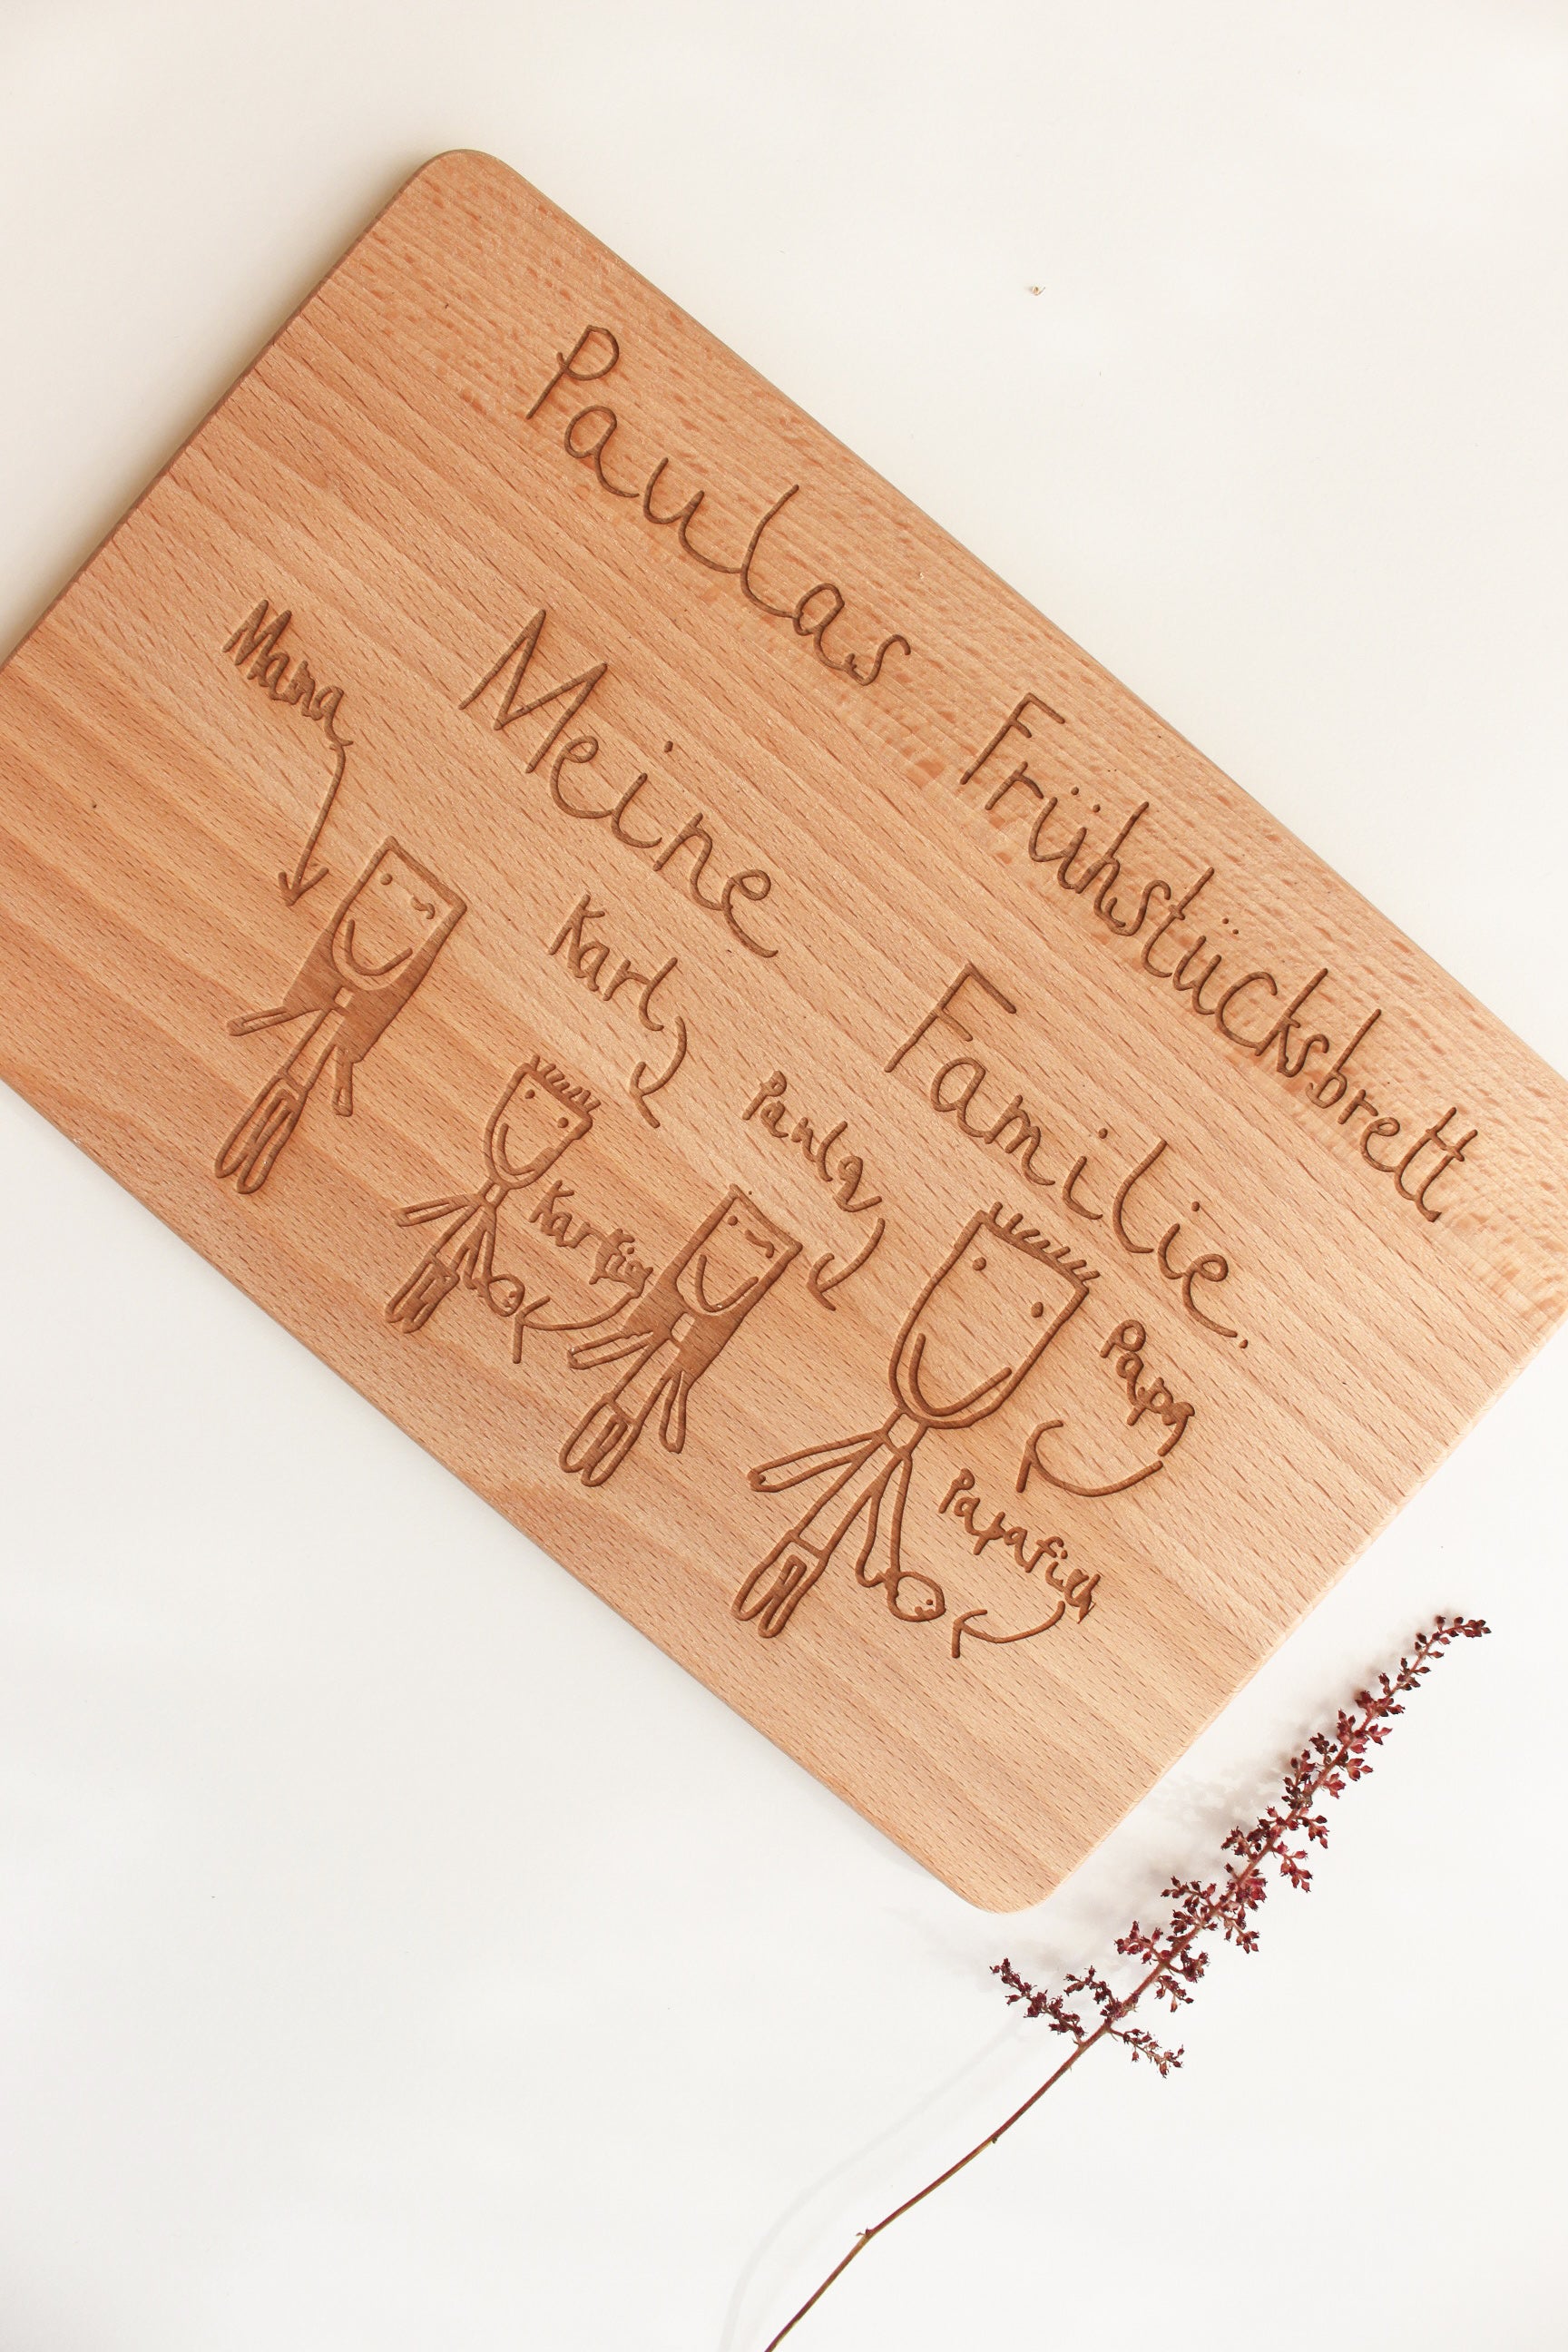 Paulas Frühstücksbrett
Meine Familie.
Mama
Karl
Paula
Papa
Papafisch